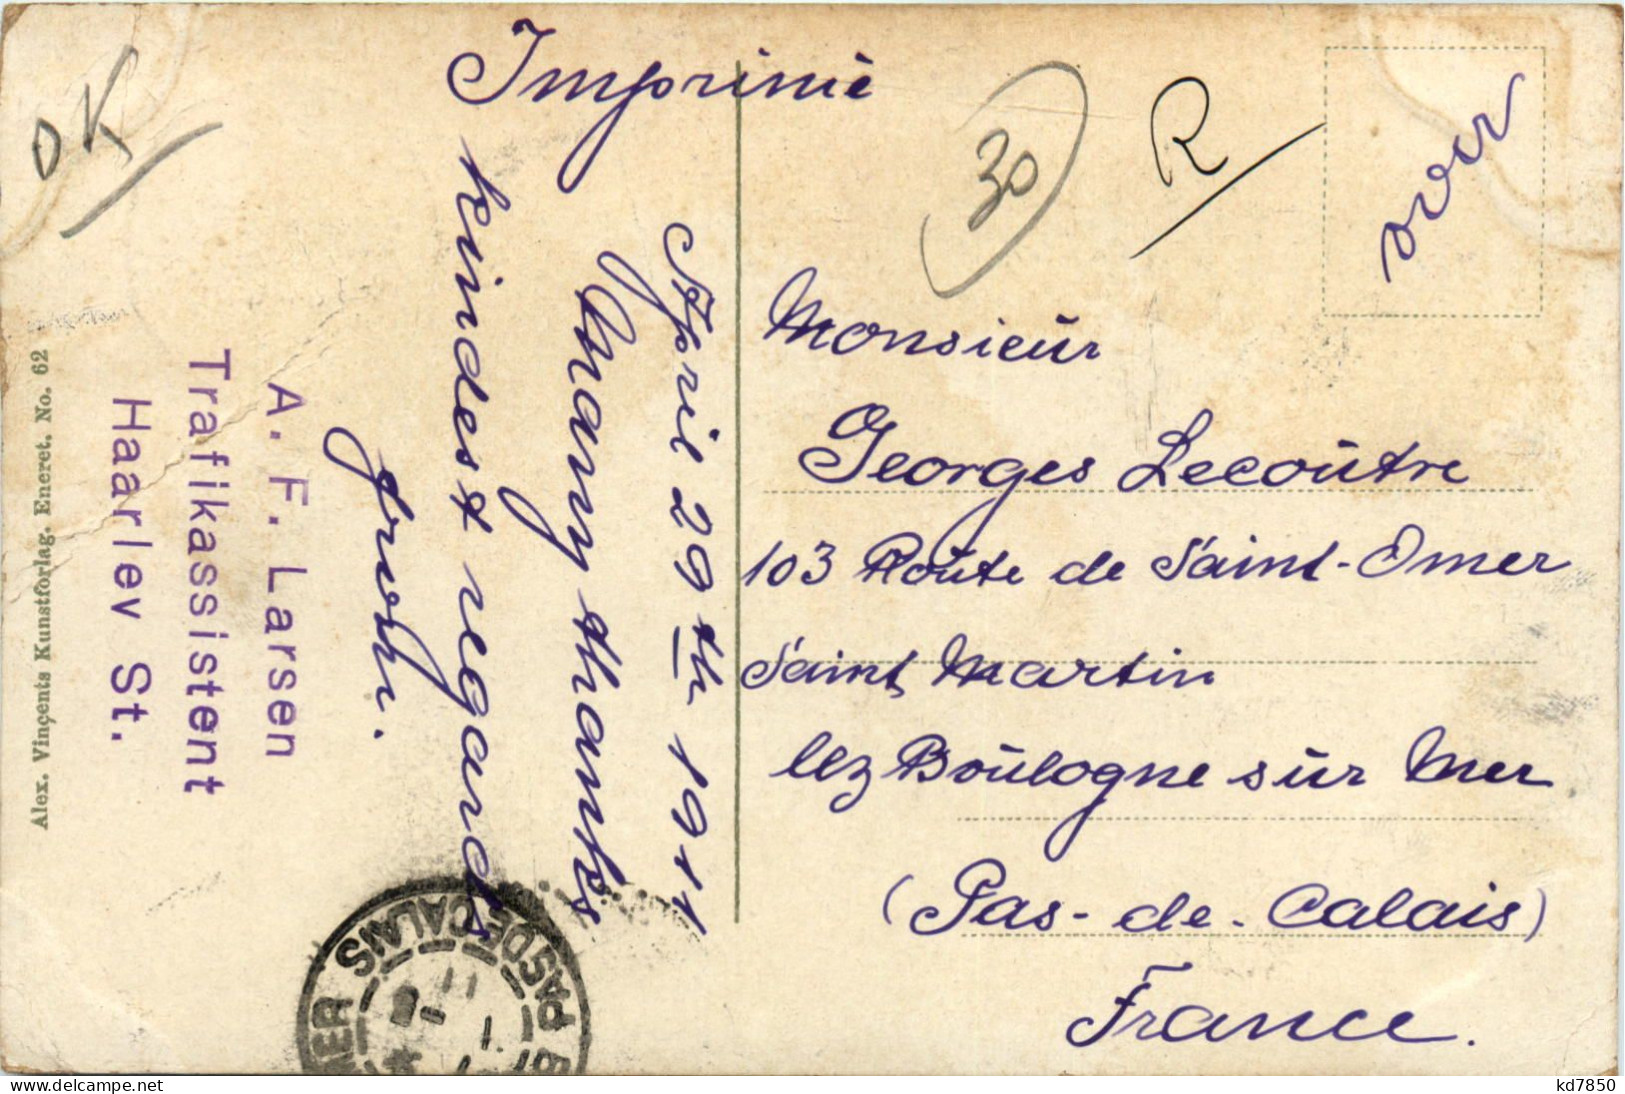 Imprimé
April 29th 1911
Many thanks
kindest regards
from.
A. F. Larsen
Trafikassistent
Haarlev St.
Alex. Vinçents Kunstforlag. Eneret. No. 62
OK
30
R
over
Monsieur
Georges Lecoûtre
103 Roûte de Saint-Omer
Saint Martin
lez Boûlogne sûr Mer
(Pas-de-Calais)
France.
MER PAS DE CALAIS
kd7850